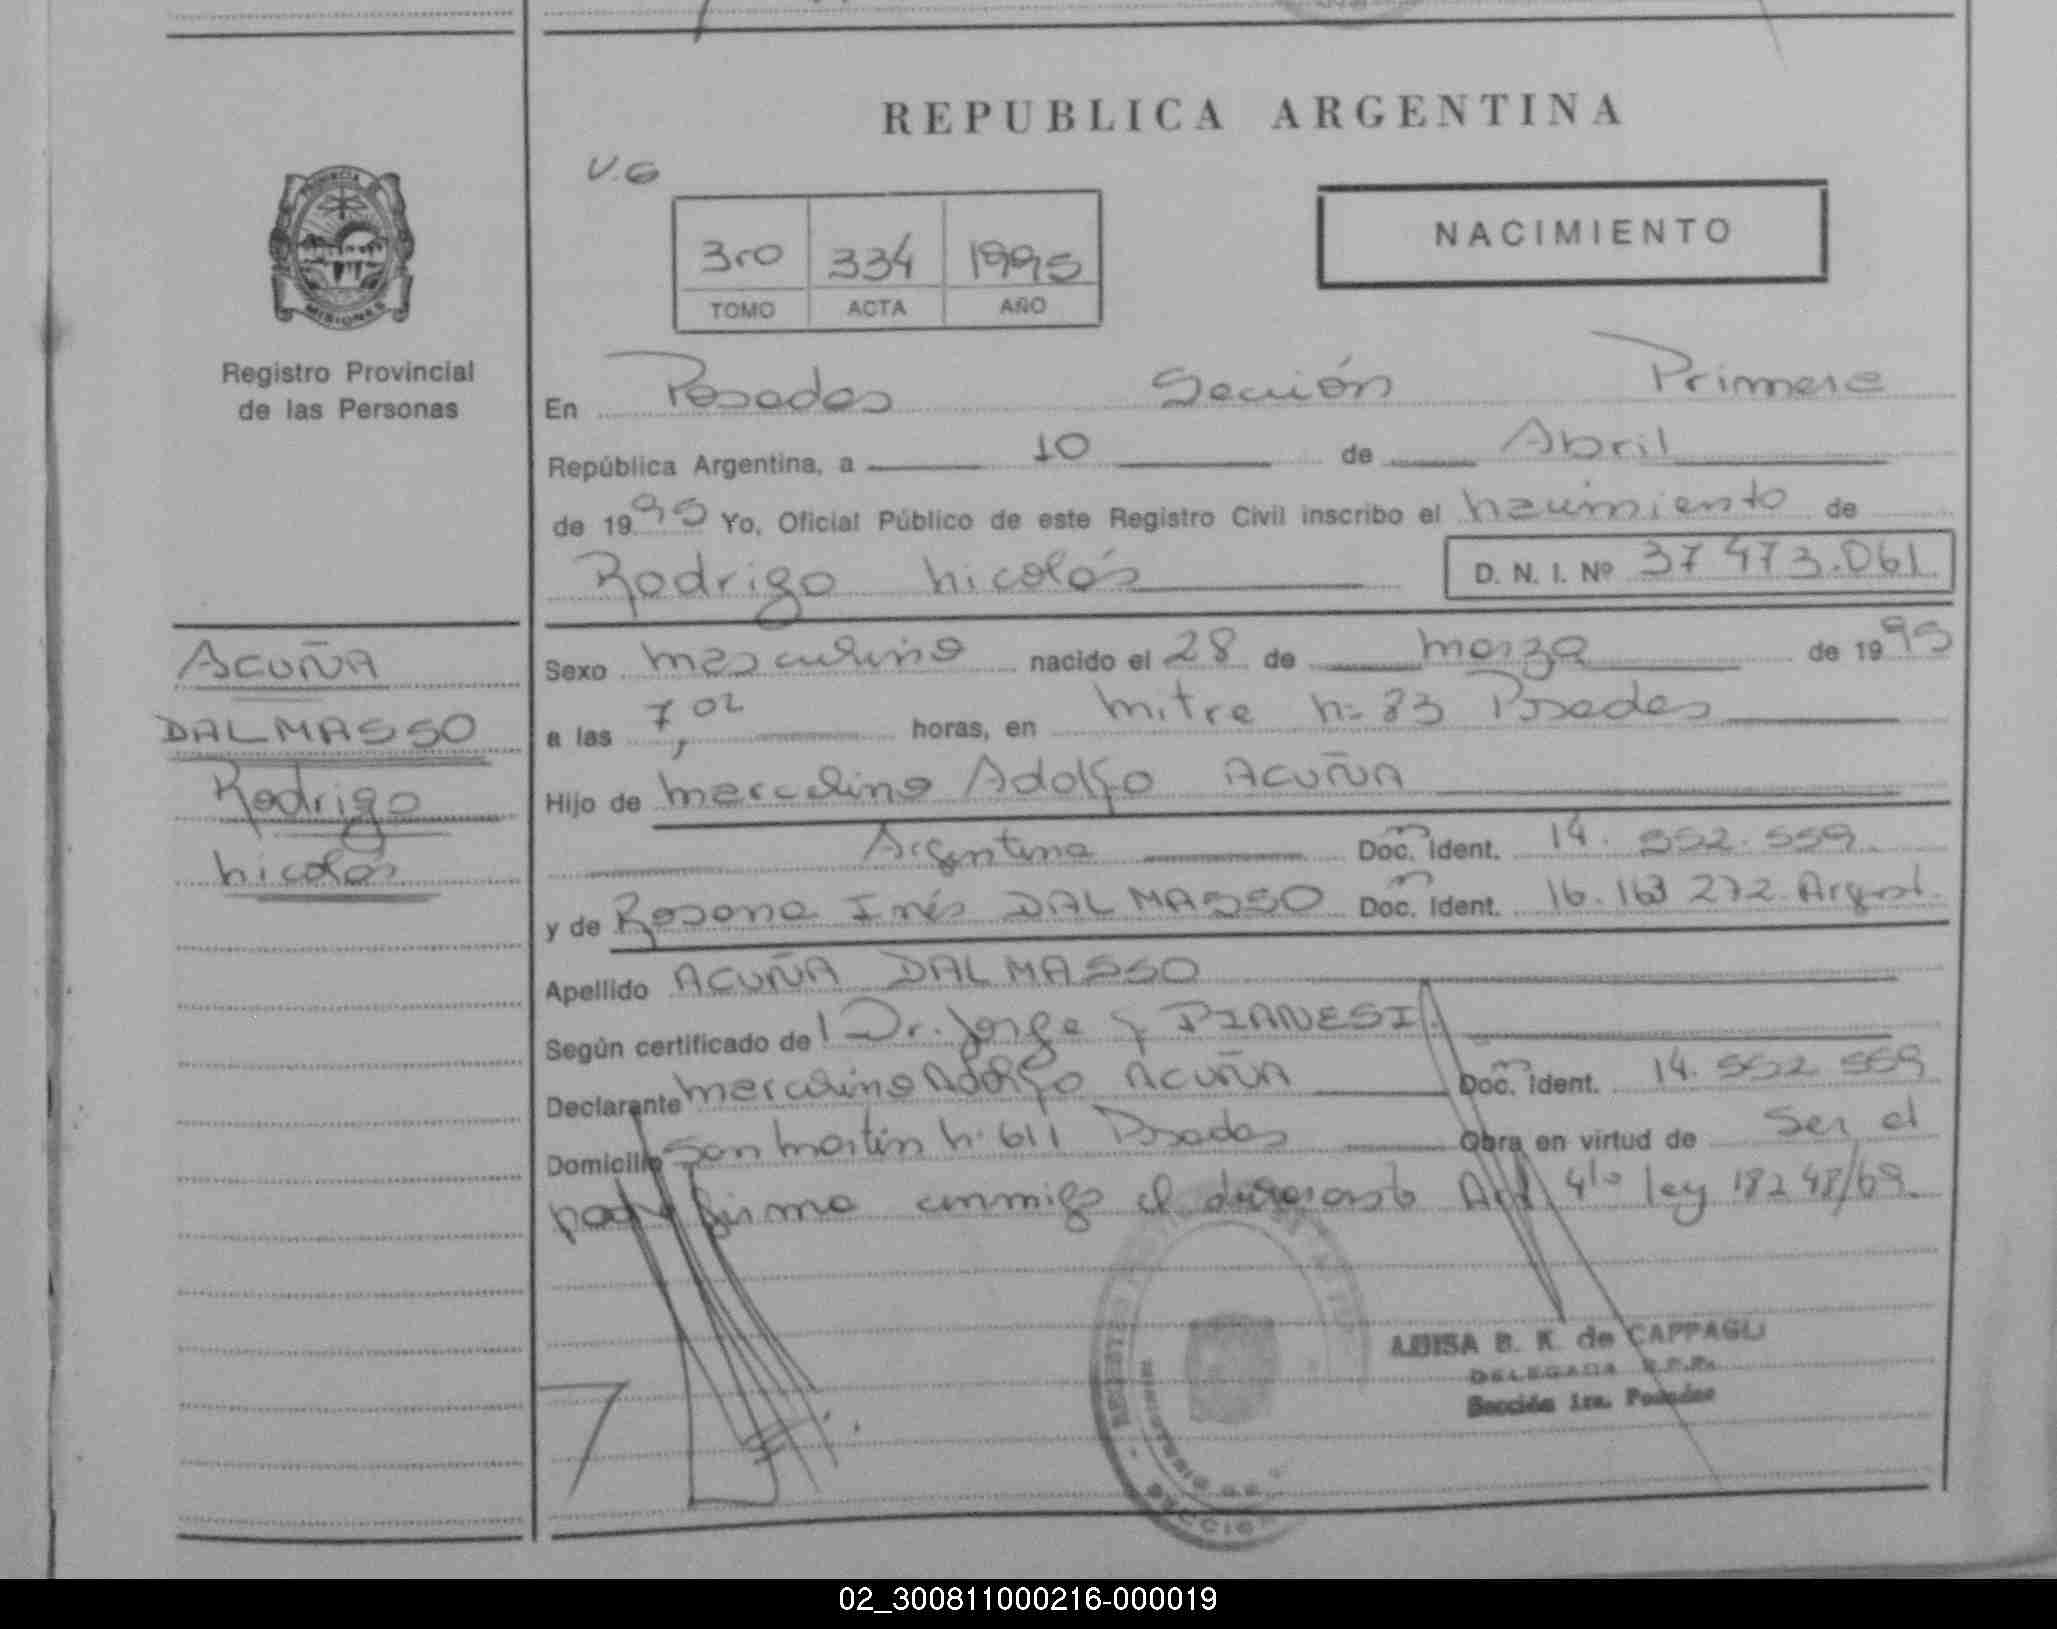 REPUBLICA ARGENTINA
V.G
NACIMIENTO
3ro 334 1995
TOMO ACTA AÑO
PROVINCIA DE
MISIONES
Registro Provincial
de las Personas
En Posadas Sección Primera
República Argentina, a 10 de Abril
de 1995 Yo, Oficial Público de este Registro Civil inscribo el nacimiento de
Rodrigo Nicolás D. N. I. Nº 37 473.061
ACUÑA
DALMASSO
Rodrigo
Nicolás
Sexo masculino nacido el 28 de marzo de 1995
a las 7,02 horas, en Mitre Nº 83 Posadas
Hijo de Marcelino Adolfo ACUÑA
Argentina Doc. Ident. 14. 552. 559
y de Rosana Inés DALMASSO Doc. Ident. 16. 163 272 Argent.
Apellido ACUÑA DALMASSO
Según certificado de Dr. Jorge PIANESI
Declarante Marcelino Adolfo ACUÑA Doc. Ident. 14. 552 559
Domicilio San Martín Nº 611 Posadas Obra en virtud de Ser el
padre firma conmigo el Art 4to ley 18248/69
LUISA B. K. de CAPPAGLI
DELEGADA R.P.P.
Sección 1ra. Posadas
SECCION
02_300811000216-000019